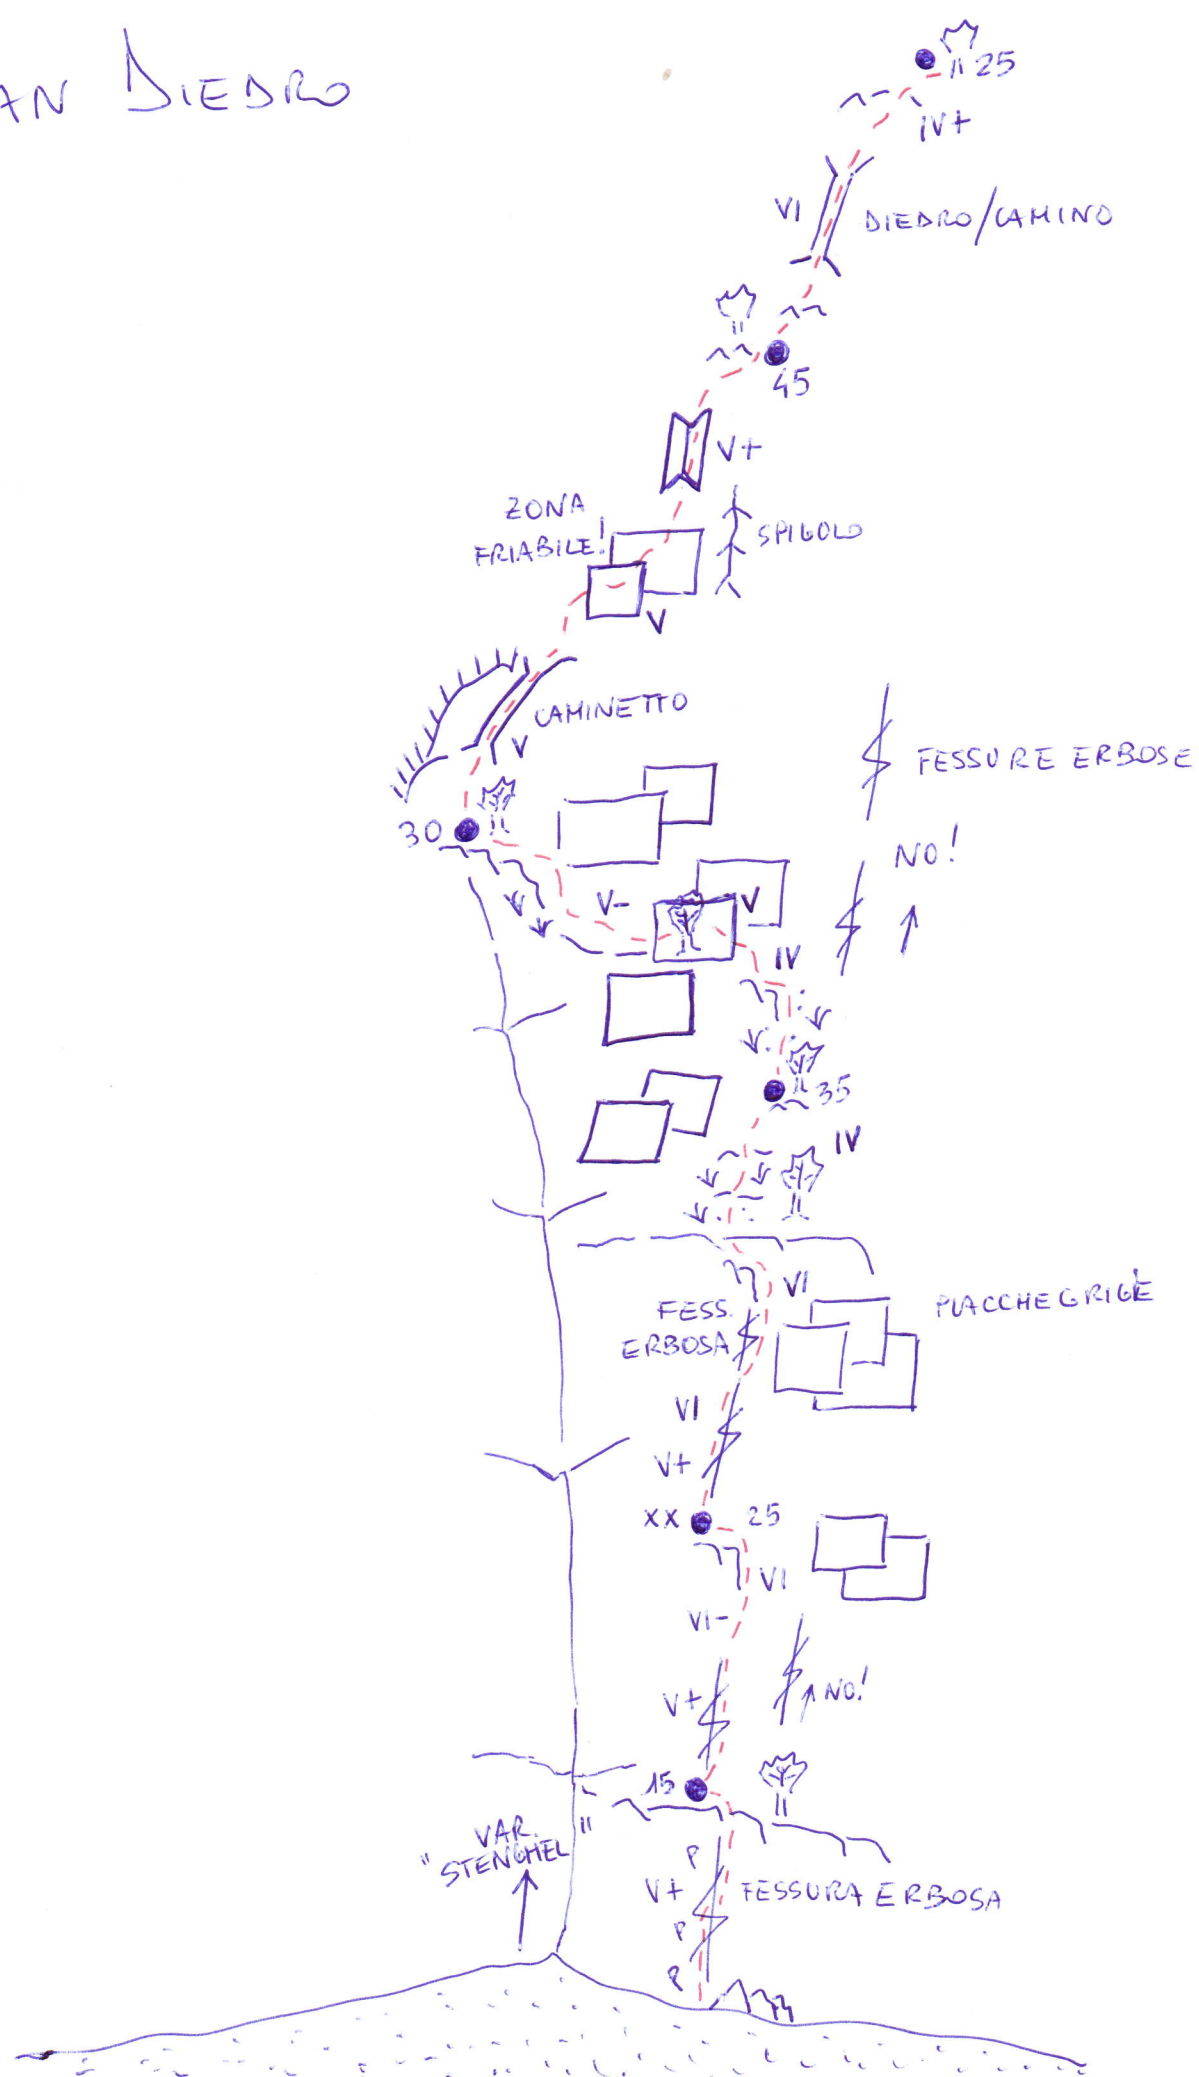 AN DIEDRO
25
IV+
VI
DIEDRO/CAMINO
45
V+
ZONA
FRIABILE!
SPIGOLO
V
CAMINETTO
V
FESSURE ERBOSE
30
NO!
V-
V
IV
35
IV
VI
FESS.
ERBOSA
PLACCHE GRIGE
VI
V+
XX
25
VI
VI-
V+
NO!
15
VAR.
"STENGHEL"
P
V+
FESSURA ERBOSA
P
P